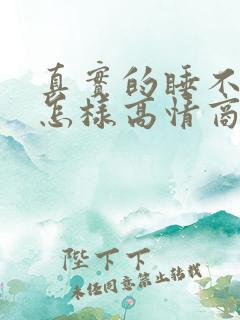 真實的睡不
怎樣高情商
陛下下
未任同意禁止转载